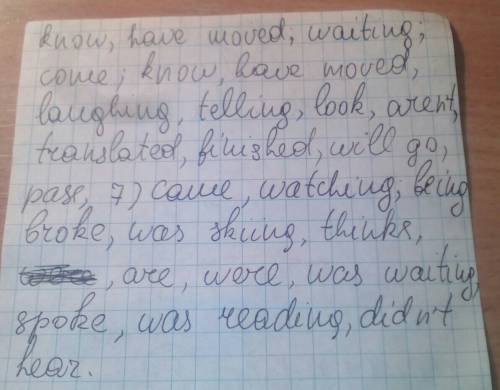 know, have moved, waiting;
come; know, have moved,
laughing, telling, look, aren't,
translated, finished, will go,
pass, 7) came, watching; being
broke, was skiing, thinks,
, are, were, was waiting,
spoke, was reading, didn't
hear.